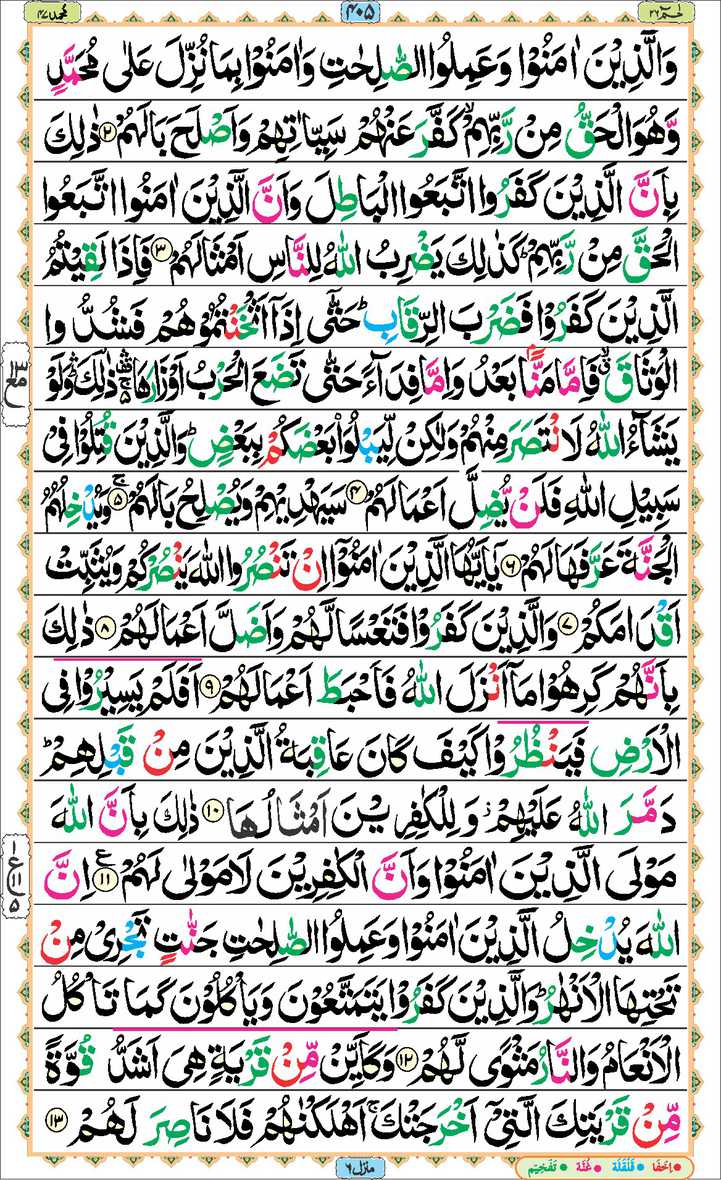 حٰمٓ ٢٦
٤٠٥
محمد ٤٧
وَالَّذِيْنَ اٰمَنُوْا وَعَمِلُوا الصّٰلِحٰتِ وَاٰمَنُوْا بِمَا نُزِّلَ عَلٰى مُحَمَّدٍ
وَّهُوَ الْحَقُّ مِنْ رَّبِّهِمْ ۙ كَفَّرَ عَنْهُمْ سَيِّاٰتِهِمْ وَاَصْلَحَ بَالَهُمْ ٢ ذٰلِكَ
بِاَنَّ الَّذِيْنَ كَفَرُوا اتَّبَعُوا الْبَاطِلَ وَاَنَّ الَّذِيْنَ اٰمَنُوا اتَّبَعُوا
الْحَقَّ مِنْ رَّبِّهِمْ ؕ كَذٰلِكَ يَضْرِبُ اللّٰهُ لِلنَّاسِ اَمْثَالَهُمْ ٣ فَاِذَا لَقِيْتُمُ
الَّذِيْنَ كَفَرُوْا فَضَرْبَ الرِّقَابِ ؕ حَتّٰٓى اِذَآ اَثْخَنْتُمُوْهُمْ فَشُدُّوا
الْوَثَاقَ ۙ فَاِمَّا مَنًّۢا بَعْدُ وَاِمَّا فِدَآءً حَتّٰى تَضَعَ الْحَرْبُ اَوْزَارَهَا ۛۚ ذٰلِكَ ۛؕ وَلَوْ
يَشَآءُ اللّٰهُ لَانْتَصَرَ مِنْهُمْ وَلٰكِنْ لِّيَبْلُوَا۟ بَعْضَكُمْ بِبَعْضٍ ؕ وَالَّذِيْنَ قُتِلُوْا فِيْ
سَبِيْلِ اللّٰهِ فَلَنْ يُّضِلَّ اَعْمَالَهُمْ ٤ سَيَهْدِيْهِمْ وَيُصْلِحُ بَالَهُمْ ۚ ٥ وَيُدْخِلُهُمُ
الْجَنَّةَ عَرَّفَهَا لَهُمْ ٦ يٰٓاَيُّهَا الَّذِيْنَ اٰمَنُوْٓا اِنْ تَنْصُرُوا اللّٰهَ يَنْصُرْكُمْ وَيُثَبِّتْ
اَقْدَامَكُمْ ٧ وَالَّذِيْنَ كَفَرُوْا فَتَعْسًا لَّهُمْ وَاَضَلَّ اَعْمَالَهُمْ ٨ ذٰلِكَ
بِاَنَّهُمْ كَرِهُوْا مَآ اَنْزَلَ اللّٰهُ فَاَحْبَطَ اَعْمَالَهُمْ ٩ اَفَلَمْ يَسِيْرُوْا فِى
الْاَرْضِ فَيَنْظُرُوْا كَيْفَ كَانَ عَاقِبَةُ الَّذِيْنَ مِنْ قَبْلِهِمْ ؕ
دَمَّرَ اللّٰهُ عَلَيْهِمْ ؗ وَلِلْكٰفِرِيْنَ اَمْثَالُهَا ١٠ ذٰلِكَ بِاَنَّ اللّٰهَ
مَوْلَى الَّذِيْنَ اٰمَنُوْا وَاَنَّ الْكٰفِرِيْنَ لَا مَوْلٰى لَهُمْ ١١ ع اِنَّ
اللّٰهَ يُدْخِلُ الَّذِيْنَ اٰمَنُوْا وَعَمِلُوا الصّٰلِحٰتِ جَنّٰتٍ تَجْرِيْ مِنْ
تَحْتِهَا الْاَنْهٰرُ ؕ وَالَّذِيْنَ كَفَرُوْا يَتَمَتَّعُوْنَ وَيَاْكُلُوْنَ كَمَا تَاْكُلُ
الْاَنْعَامُ وَالنَّارُ مَثْوًى لَّهُمْ ١٢ وَكَاَيِّنْ مِّنْ قَرْيَةٍ هِيَ اَشَدُّ قُوَّةً
مِّنْ قَرْيَتِكَ الَّتِيْٓ اَخْرَجَتْكَ ۚ اَهْلَكْنٰهُمْ فَلَا نَاصِرَ لَهُمْ ١٣
منزل ٦
اخفا قلقلة غنة تفخيم